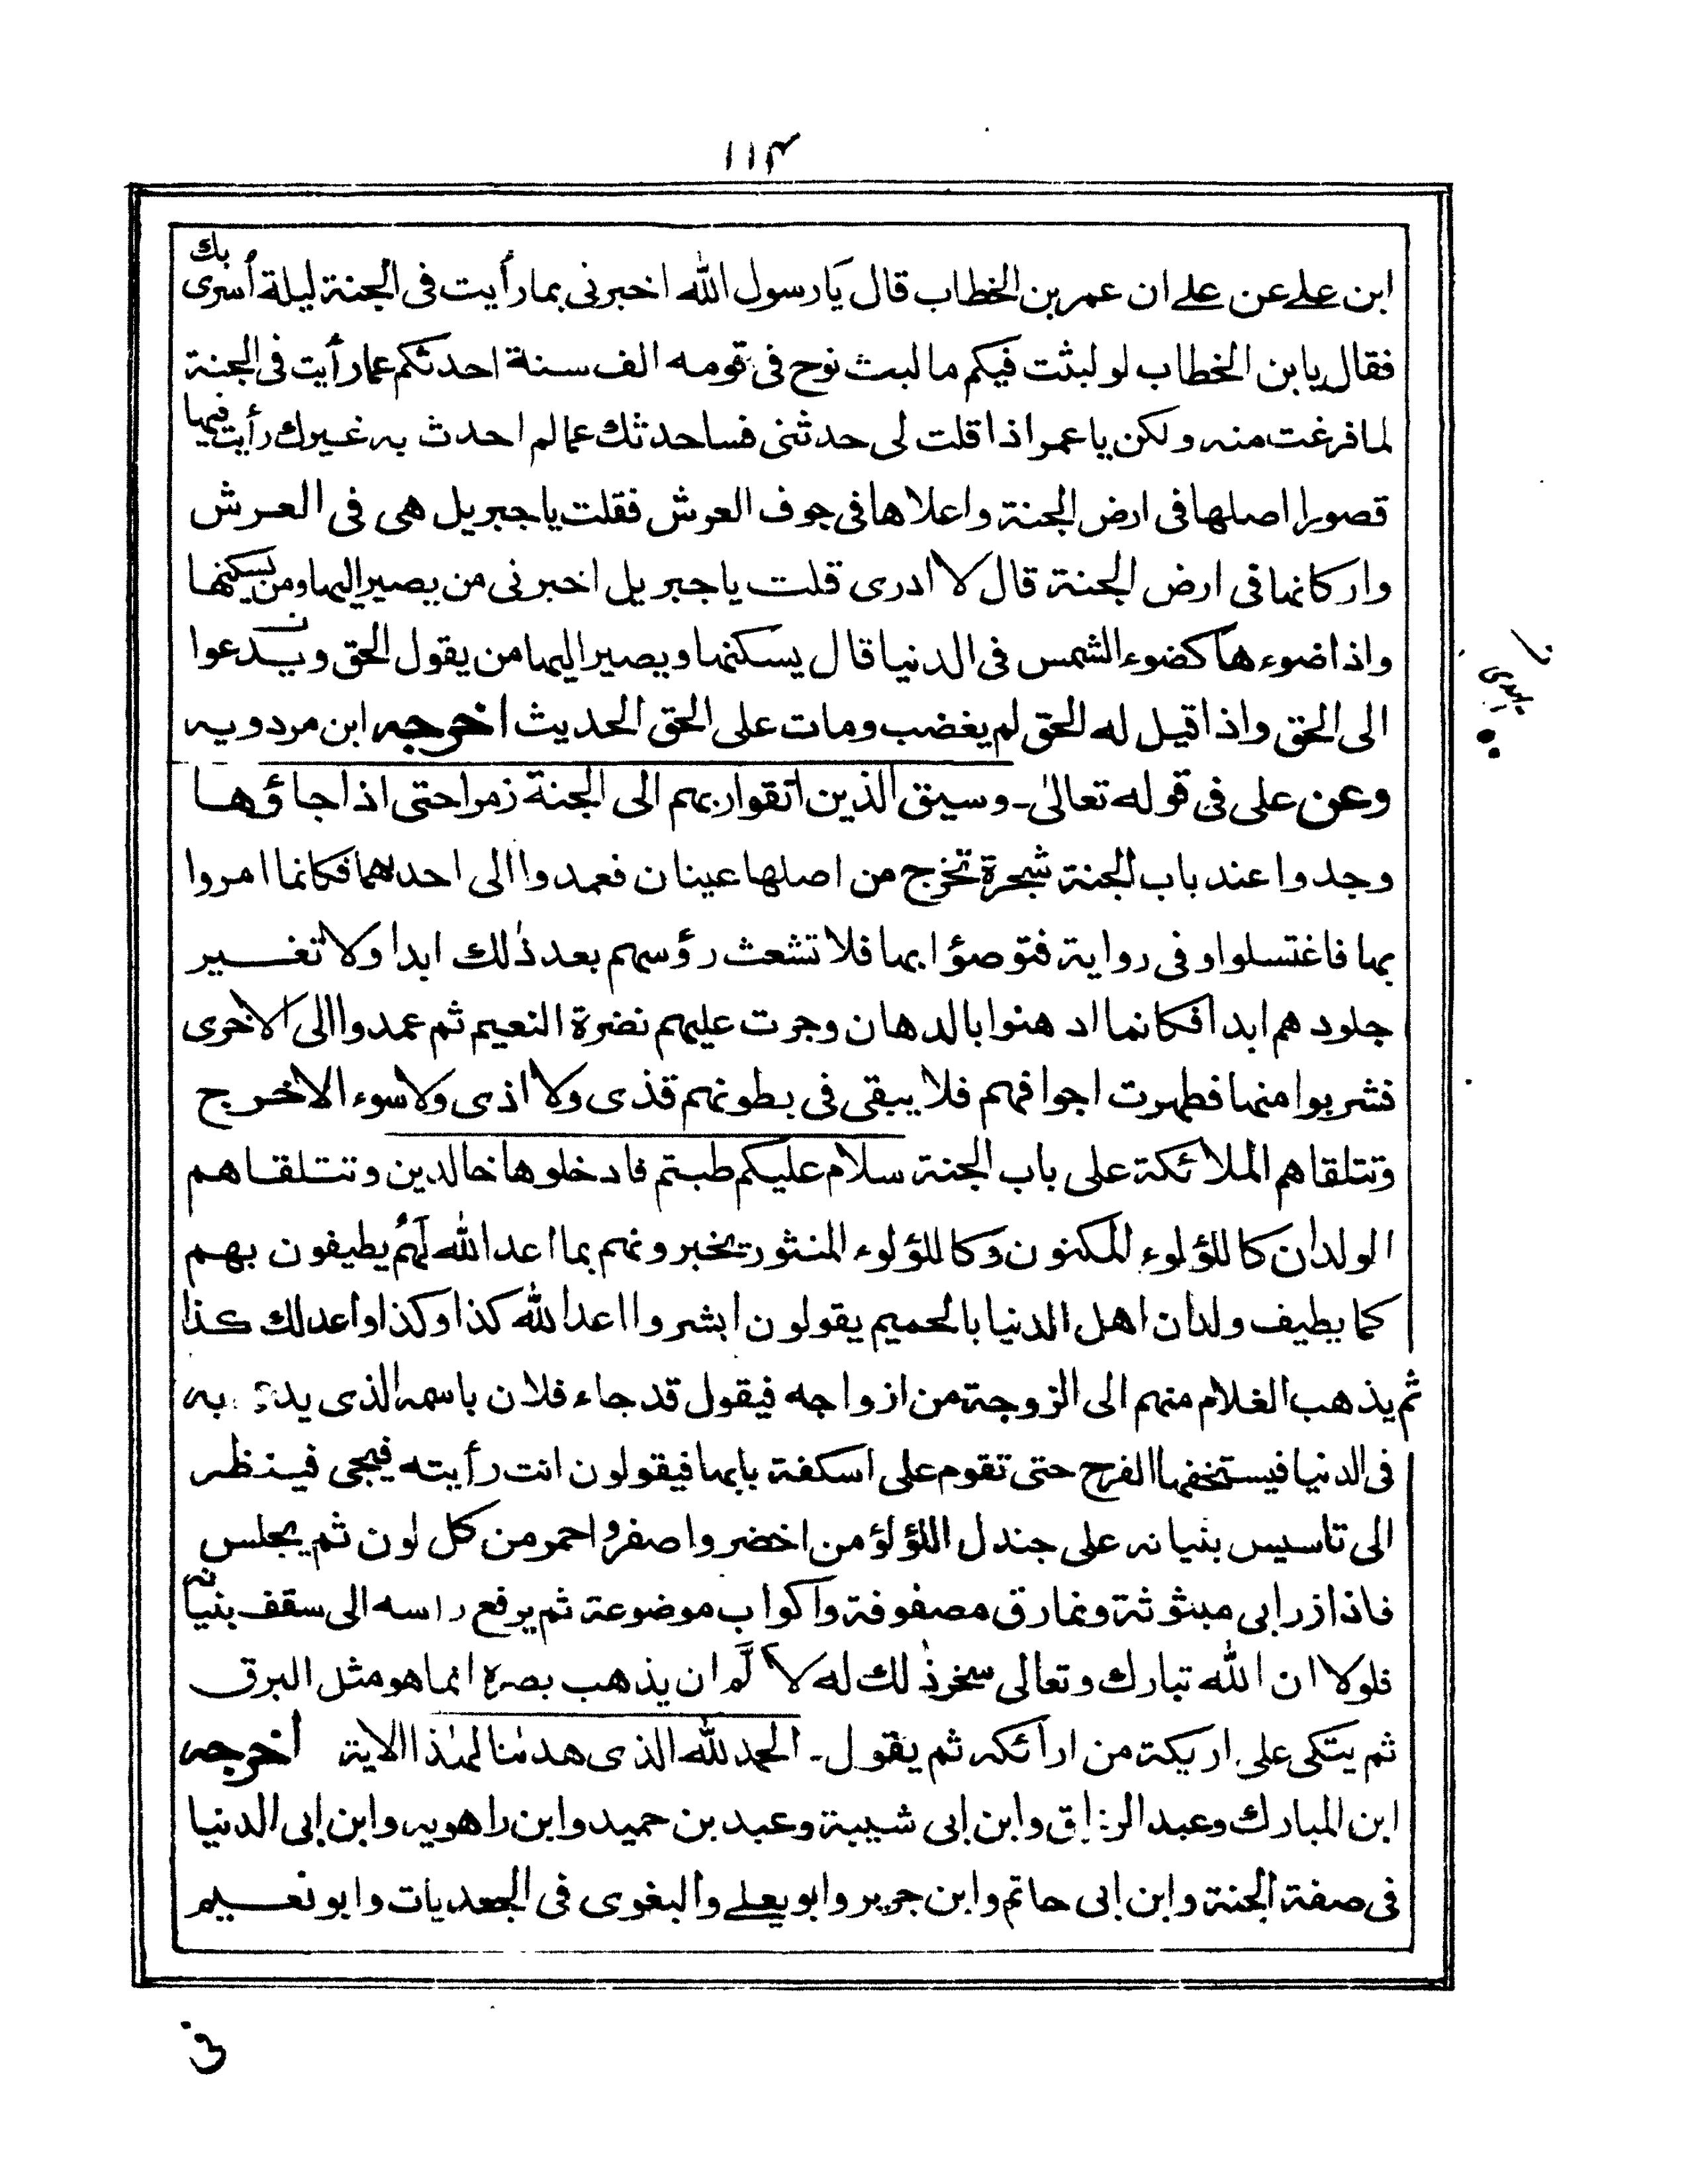 ١١٣
ابن علے عن علے ان عمر بن الخطاب قال يا رسول الله اخبرنى بما رأيت فى الجنة ليلة أسرى بك
فقال يا بن الخطاب لو لبثت فيكم ما لبث نوح فى قومه الف سنة احدثكم عما رأيت فى الجنة
لما فرغت منه ولكن يا عمر اذا قلت لى حدثنى فساحدثك عما لم احدث به غيرك رأيت فيها
قصورا اصلها فى ارض الجنة واعلاها فى جوف العرش فقلت يا جبريل هى فى العرش
واركانها فى ارض الجنة قال لا ادرى قلت يا جبريل اخبرنى من يصير اليها ومن يسكنها
واذا ضوءها كضوء الشمس فى الدنيا قال يسكنها ويصير اليها من يقول الحق ويدعوا
الى الحق واذا قيل له الحق لم يغضب ومات على الحق الحديث اخرجه ابن مردويه
وعن على فى قوله تعالىٰ۔ وسيق الذين اتقوا ربهم الى الجنة زمرا حتى اذا جاؤها
وجدوا عند باب الجنة شجرة تخرج من اصلها عينان فعمدوا الى احدهما فكانما امروا
بها فاغتسلوا وفى رواية فتوضؤا بها فلا تشعث رؤسهم بعد ذٰلك ابدا ولا تغير
جلودهم ابدا فكانما ادهنوا بالدهان وجرت عليهم نضرة النعيم ثم عمدوا الى الاخرى
فشربوا منها فطهرت اجوافهم فلا يبقى فى بطونهم قذى ولا اذى ولا سوء الا خرج
وتتلقاهم الملائكة على باب الجنة سلام عليكم طبتم فادخلوها خالدين وتتلقاهم
الولدان كاللؤلوء المكنون وكاللؤلوء المنثور يخبرونهم بما اعد الله لهم يطيفون بهم
كما يطيف ولدان اهل الدنيا بالحميم يقولون ابشروا اعد الله كذا وكذا واعد لك كذا
ثم يذهب الغلام منهم الى الزوجة من ازواجه فيقول قد جاء فلان باسمه الذى به
فى الدنيا فيستخفها الفرح حتى تقوم على اسكفة بابها فيقولون انت رأيته فيجى فينظر
الى تاسيس بنيانه على جندل اللؤلؤ من اخضر واصفر واحمر من كل لون ثم يجلس
فاذا زرابى مبثوثة ونمارق مصفوفة واكواب موضوعة ثم يرفع راسه الى سقف بنيانه
فلولا ان الله تبارك وتعالى سخر ذٰلك له لا لَمَّ ان يذهب بصره انما هو مثل البرق
ثم يتكى على اريكة من ارائكه ثم يقول۔ الحمد لله الذى هدٰنا لهٰذا الاية اخرجه
ابن المبارك وعبد الرزاق وابن ابى شيبة وعبد بن حميد وابن راهويه وابن ابى الدنيا
فى صفة الجنة وابن ابى حاتم وابن جرير وابو يعلے والبغوى فى الجعديات وابو نعيم